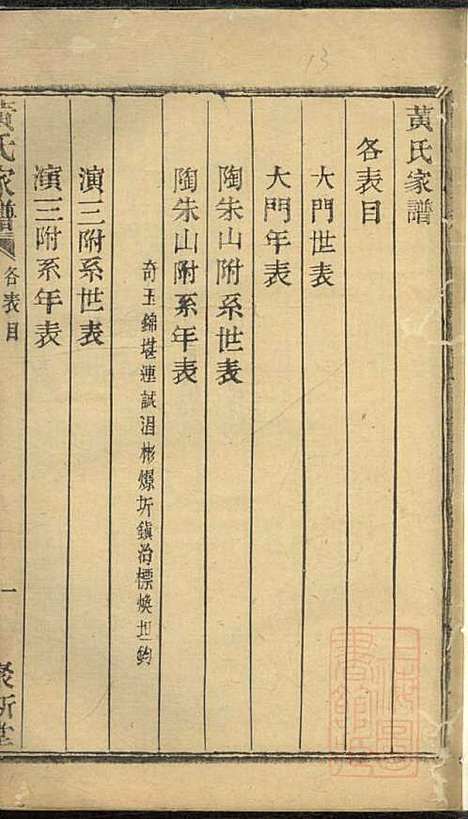 13
黃氏家譜
各表目
大門世表
大門年表
陶朱山附系世表
陶朱山附系年表
奇玉錦堪連誠湄彬爆圻鎮治標煥坦鈞
演三附系世表
演三附系年表
黃氏家譜
各表目
一